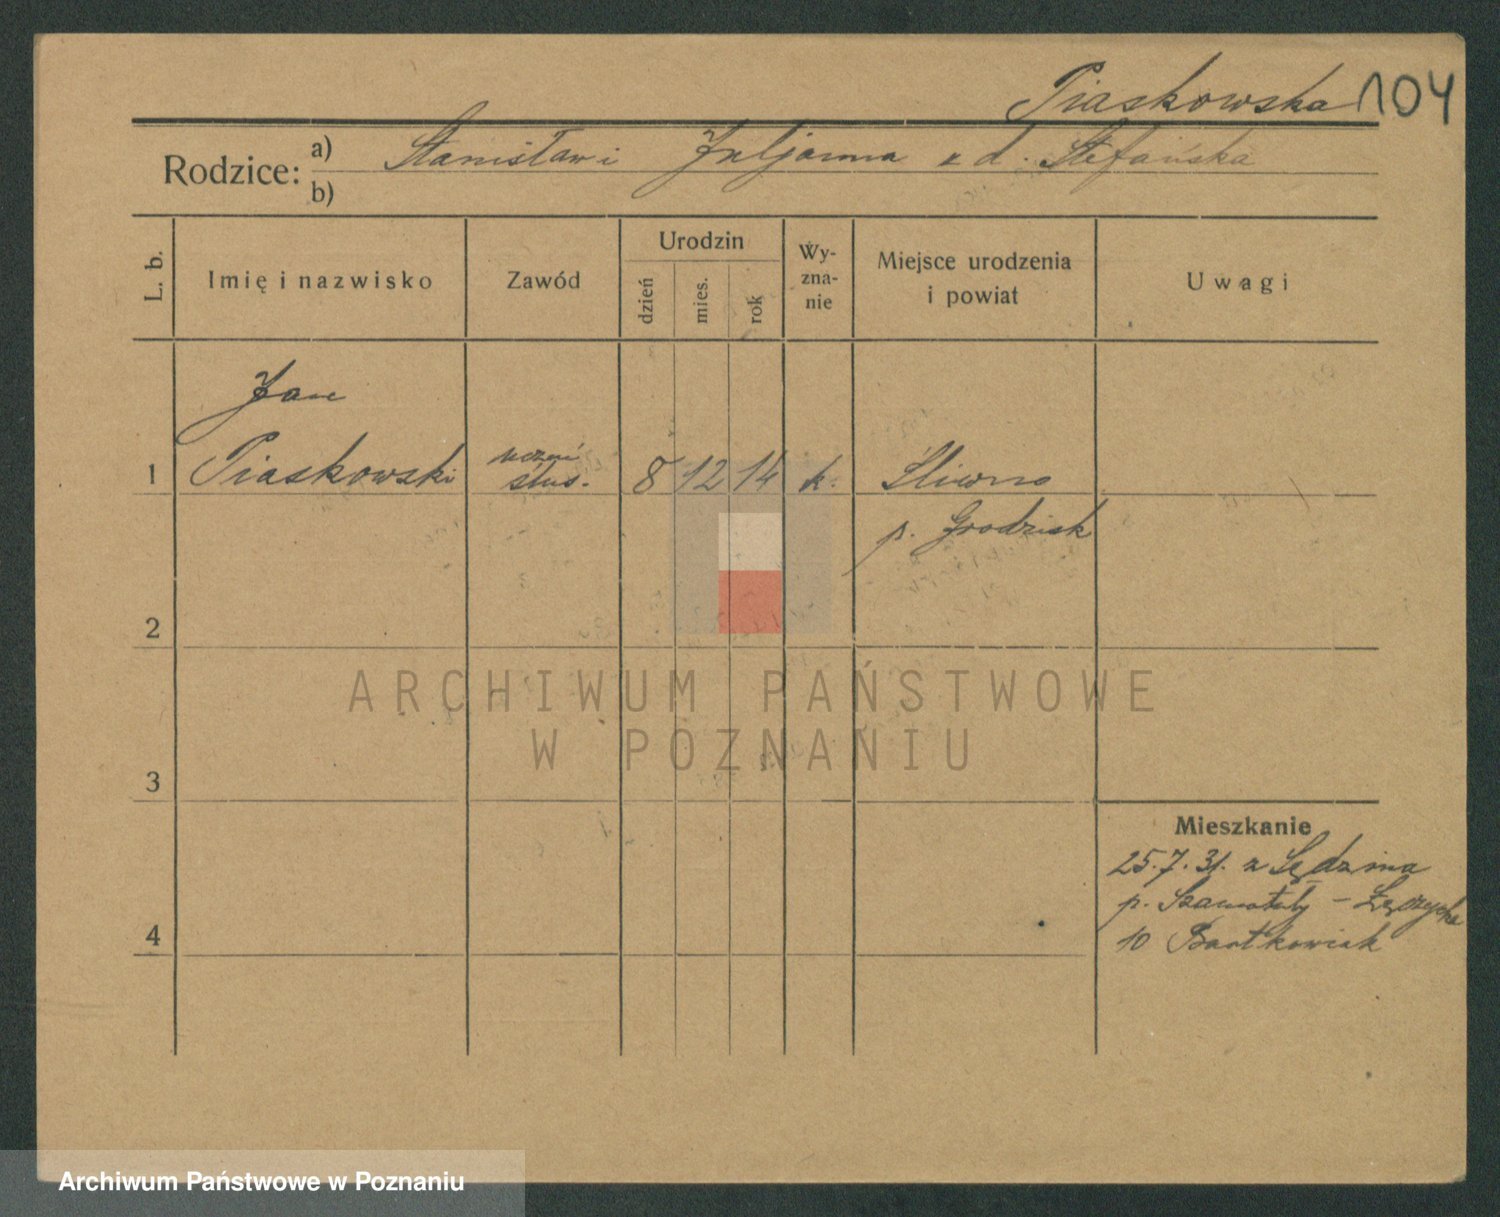 Piaskowska 104
Rodzice: a) Stanisław i Juljanna ud. Stefańska
b)
L. b. Imię i nazwisko Zawód Urodzin dzień mies. rok Wy-zna-nie Miejsce urodzenia i powiat Uwagi
Jan
1 Piaskowski uczeń ślus. 8 12 14 k. Śliwno
p. Grodzisk
2
ARCHIWUM PAŃSTWOWE
W POZNANIU
3
Mieszkanie
25.7.31. z Sędzina
p. Szamotuły - Łęczycka
4
10 Bartkowiak
Archiwum Państwowe w Poznaniu